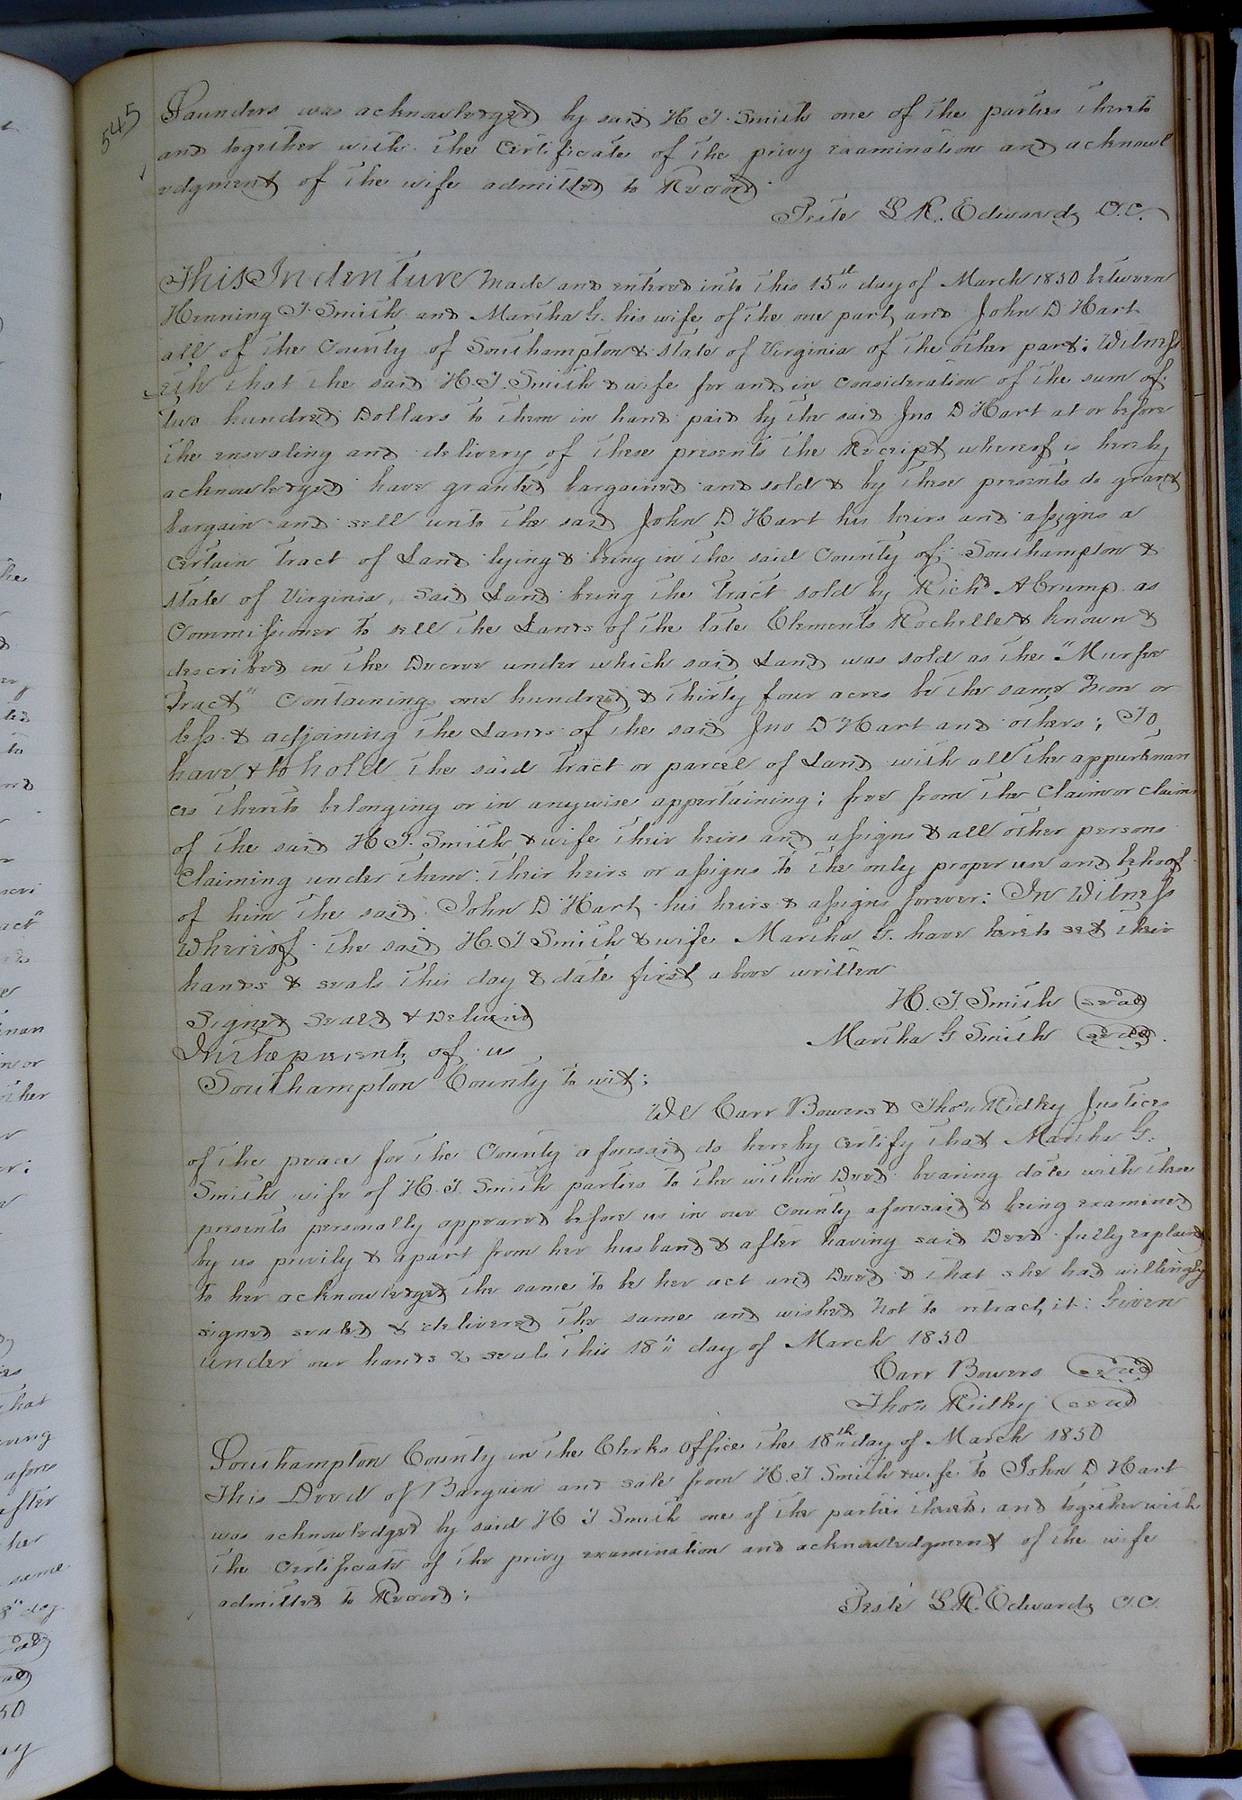 545
Saunders was acknowledged by said H J. Smith one of the parties thereto
and together with the Certificate of the privy examination and acknowl
edgment of the wife admitted to Record.
Teste L R. Edwards C.C.
This Indenture Made and entered into this 15th day of March 1850 between
Henning J. Smith and Martha G. his wife of the one part, and John D Hart
all of the County of Southampton & state of Virginia of the other part: Witness
eth That the said H.J. Smith & wife for and in consideration of the sum of
two hundred Dollars to them in hand paid by the said Jno D Hart at or before
the ensealing and delivery of these presents the Receipt whereof is hereby
acknowledged have granted bargained and sold & by these presents do grant
bargain and sell unto the said John D Hart his heirs and assigns a
Certain tract of Land lying & being in the said County of Southampton &
state of Virginia, said Land being the tract sold by Richd A Crump as
Commissioner to sell the Lands of the late Clements Rochelle & known &
described in the Decree under which said Land was sold as the "Murfee
Tract" Containing one hundred & thirty four acres be the same more or
less & adjoining the Lands of the said Jno D Hart and others; To
have & to hold the said tract or parcel of Land with all the appurtenan
ces thereto belonging or in anywise appertaining; free from the Claim or claims
of the said H J. Smith & wife their heirs and assigns & all other persons
Claiming under them: their heirs or assigns to the only proper use and behoof
of him the said John D Hart his heirs & assigns forever: In Witness
Whereof the said H. J Smith & wife Martha G. have hereto set their
hands & seals this day & date first above written
H. J Smith seal
Signed Seald & Delivered
Martha G Smith seal.
In the presents of us
Southampton County to wit:
We Carr Bowers & Thos Ridley Justices
of the peace for the County aforesaid do hereby certify that Martha G.
Smith wife of H. J. Smith parties to the within Deed bearing date with these
presents personally appeared before us in our County aforesaid & being examined
by us privily & apart from her husband & after having said Deed fully explaind
to her acknowledged the same to be her act and Deed & that she had willingly
signed sealed & delivered the same and wished not to retract it: Given
under our hands & seals this 18" day of March 1850
Carr Bowers seal
Thos Ridley seal
Southampton County in the Clerks Office the 18th day of March 1850
This Deed of Bargain and sale from H. J Smith & wife to John D Hart
was acknowledged by said H J Smith one of the parties thereto, and together with
the Certificate of the privy examination and acknowledgment of the wife
admitted to Record;
Teste L.R. Edwards C.C.